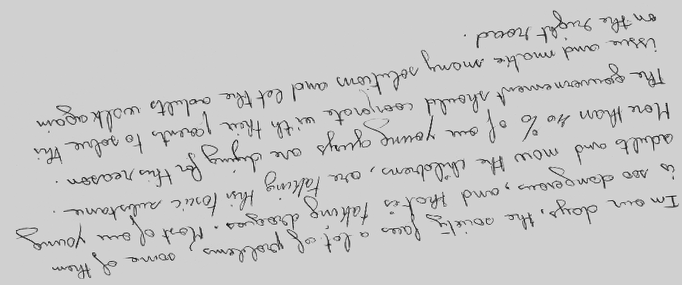 In our days, the society faces a lot of problems, some of them
is soo dangerous, and that is taking drooges. Most of our young
adults and now the childrens, are taking this toxic substane.
More than 40% of our young guys are dying for this reason.
The gouvernement should cooporate with their parents to solve this
issue and make many solutions and let the adults walk again
on the right road.